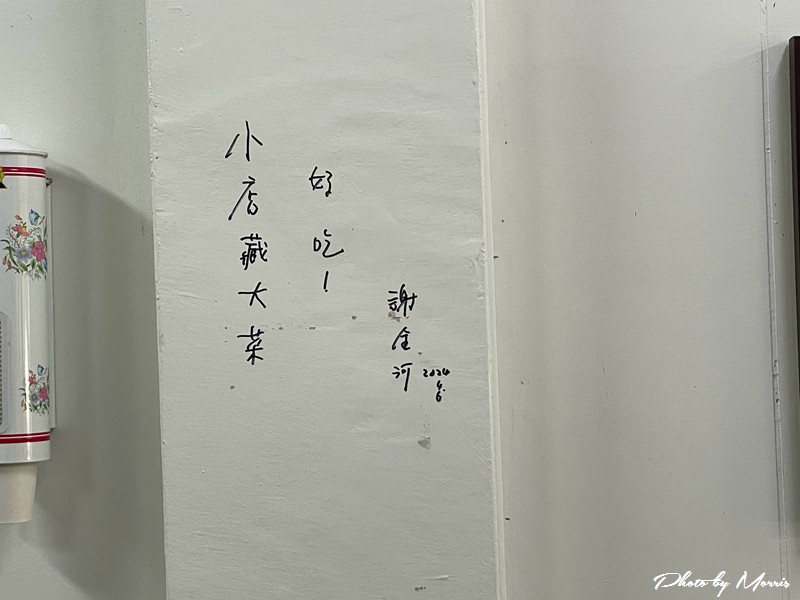 小店藏大菜
好吃！
謝金河
2024
6
6
Photo by Morris